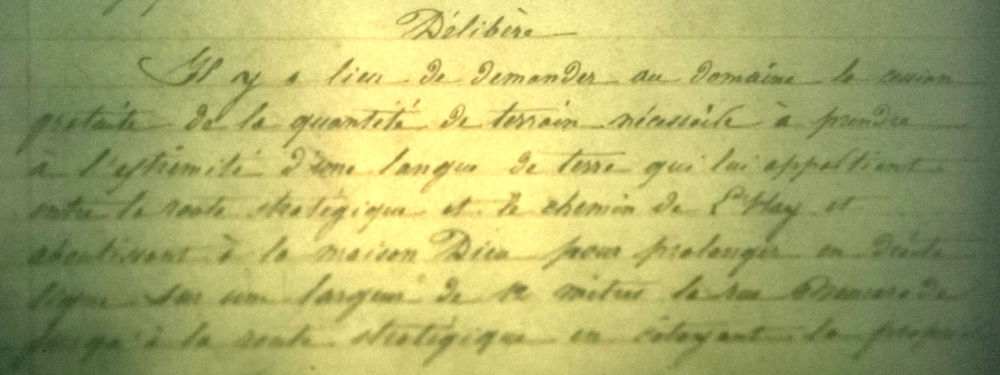 Délibère
Il y a lieu de demander au domaine la cession
gratuite de la quantité de terrain nécessaire à prendre
à l'extrémité d'une langue de terre qui lui appartient
entre la route stratégique et le chemin de L'Hay et
aboutissant à la maison Dieu pour prolonger en droite
ligne sur une largeur de mètres la rue
jusqu'à la route stratégique en côtoyant la